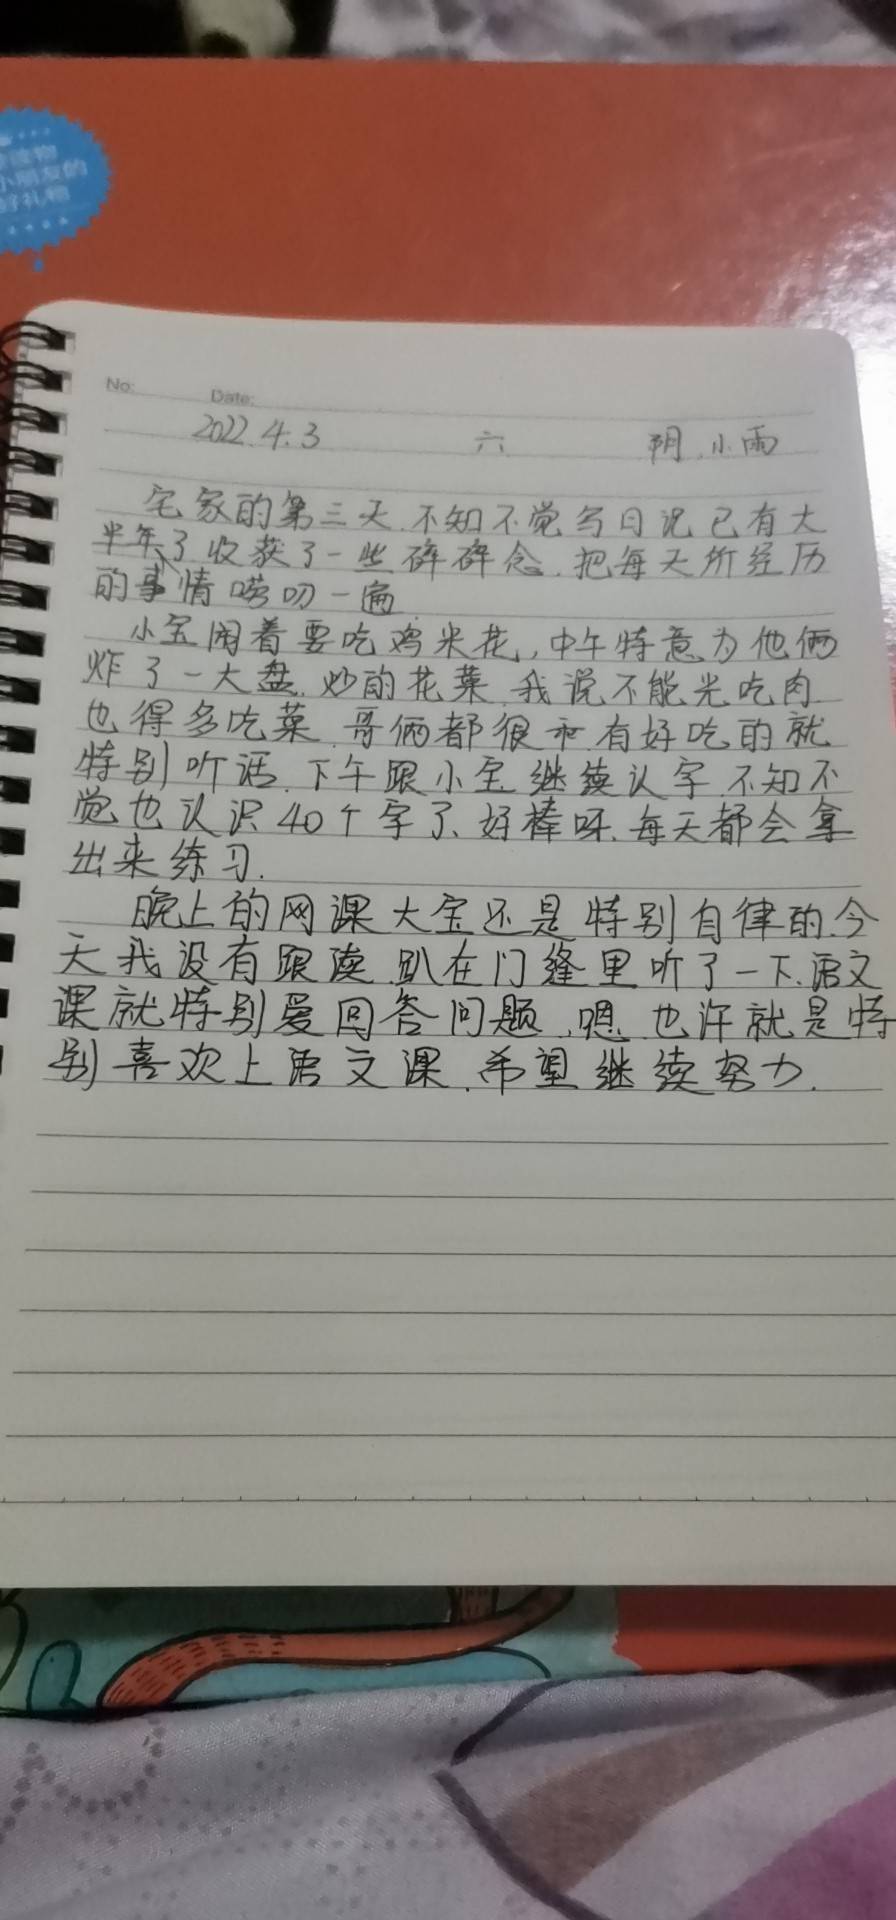 课读物
小朋友的
好礼物
No:
Date:
2022.4.3 六 阴.小雨
宅家的第三天.不知不觉写日记已有大
半年了收获了一些碎碎念.把每天所经历
的事情唠叨一遍
小宝闹着要吃鸡米花,中午特意为他俩
炸了一大盘.炒的花菜.我说不能光吃肉
也得多吃菜.哥俩都很 有好吃的就
特别听话.下午跟小宝继续认字.不知不
觉也认识40个字了、好棒呀.每天都会拿
出来练习.
晚上的网课大宝还是特别自律的.今
天我没有跟读.趴在门缝里听了一下.语文
课就特别爱回答问题.嗯.也许就是特
别喜欢上语文课.希望继续努力.